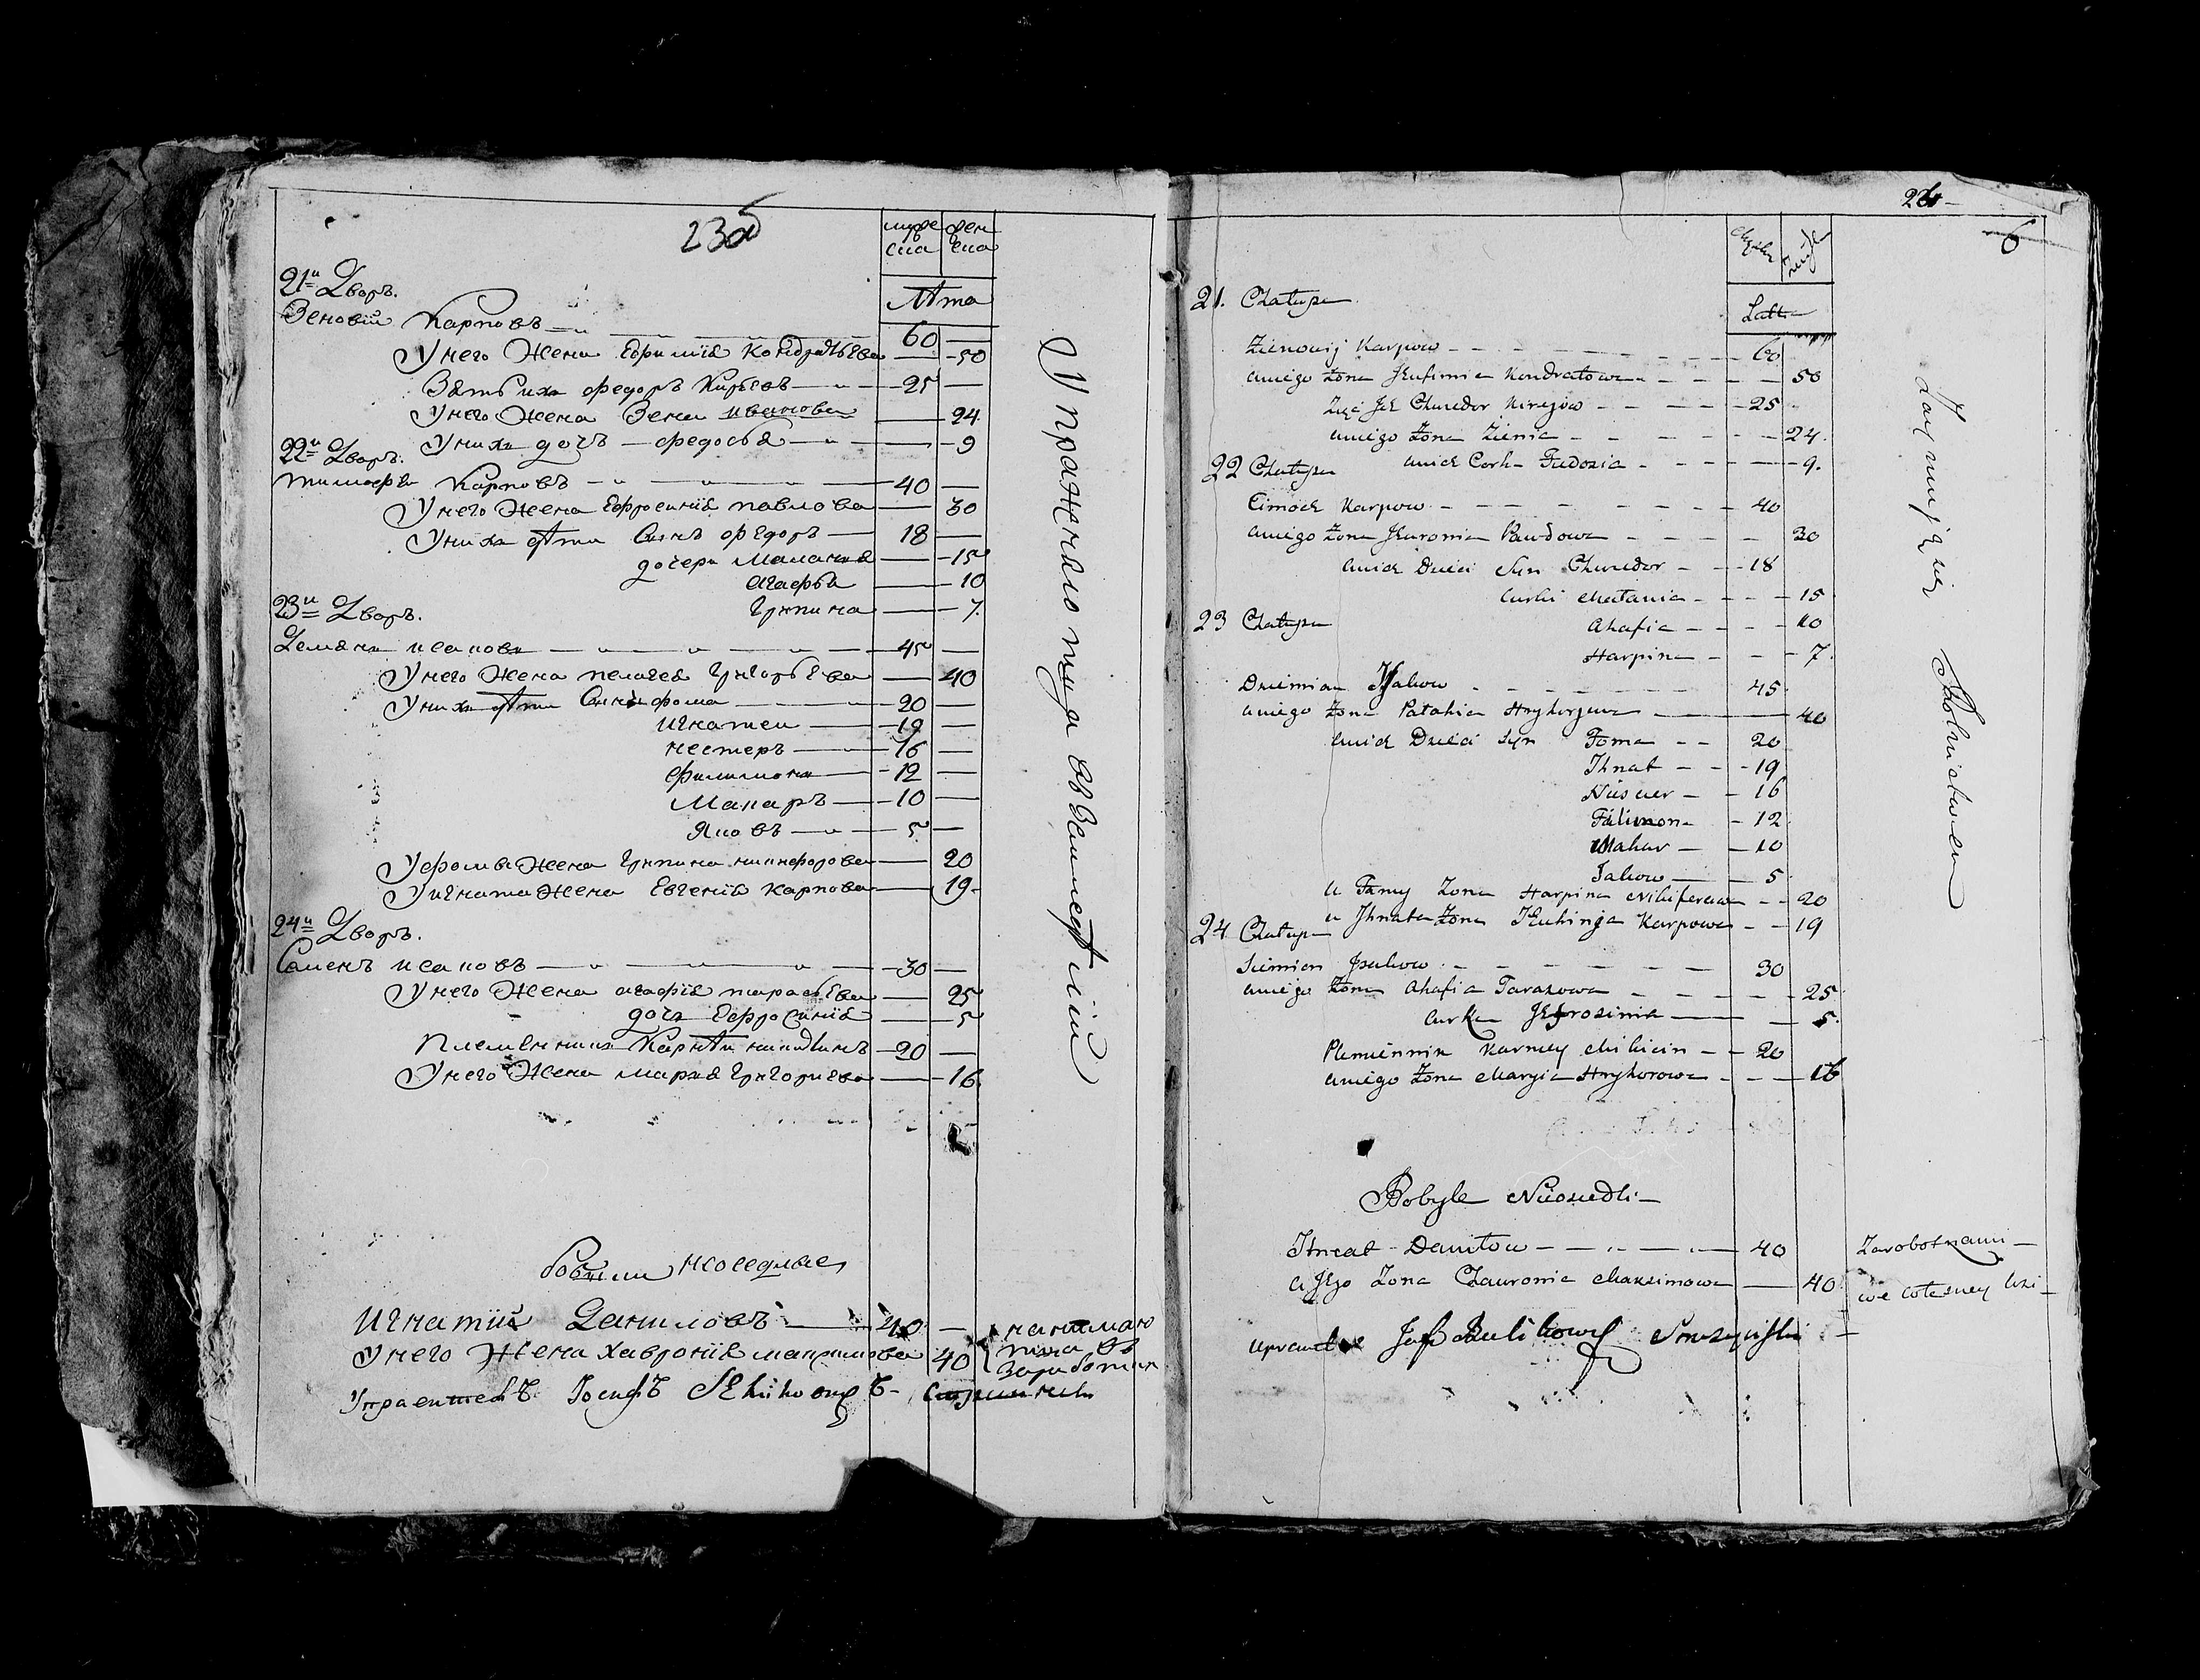 23об
муже
ска
жен
ска
Лѣта
21й Дворъ.
Зеновій Карповъ 60
У него Жена Ефимія Кондратьева 50
Зять ихъ Федоръ Кирѣевъ 25
У него Жена Зена Иванова 24
У нихъ дочь Федосья 9
22й Дворъ.
Тимофей Карповъ 40
У него Жена Ефросинія Павлова 30
У нихъ дѣти Сынъ Федоръ 18
дочери Маланья 15
Агафья 10
Грипина 7
23й Дворъ.
Демянъ Исаковъ 45
У него Жена Пелагея Григорьева 40
У нихъ дѣти Сынъ Фома 20
Игнатей 19
Нестеръ 16
Филимонъ 12
Макаръ 10
Яковъ 5
У Фомы Жена Грипина Никифорова 20
У Игната Жена Евгенія Карпова 19
24й Дворъ.
Семенъ Исаковъ 30
У него Жена Агафія Тарасьева 25
дочь Ефросинія 5
Племянникъ Карнѣй Никитинъ 20
У него Жена Марья Григорьева 16
Упражняютца в Земледѣліи
бобыли неоседлые
Игнатій Даниловъ 40
У него Жена Хавронія Максимова 40
нанимаю
тца въ
Заработки
Управитель Іосифъ
24
6
Męzka
Żeńska
Latta
21. Chałupa
Zienowij Karpow 60
u niego Żona Jeufimia Kondratowa 50
Zięć Jch Chwiedor Kirejów 25
u niego Żona Zienia 24
u nich Corka Fiedozia 9
22 Chałupa
Cimoch Karpow 40
u niego Żona Jeuronia Pawłowa 30
u nich Dzieci Syn Chwiedor 18
Curki Małania 15
Ahafia 10
Harpina 7
23 Chałupa
Dziemian Jsakow 45
u niego Żona Pałahia Hryhorjewa 40
u nich Dzieci Syn Foma 20
Jhnat 19
Niescier 16
Filimon 12
Makar 10
Jakow 5
u Famy Żona Harpina Nikiferowa 20
u Jhnata Żona Jeuhinja Karpowa 19
24 Chałupa
Siemion Jsakow 30
u niego Żona Ahafia Tarasowa 25
Curka Jefrozinia 5
Plemiennik Karniey Mikicin 20
u niego Żona Maryia Hryhorowa 16
Zaymują się Rolnictwem
Bobyle Nieosiedli
Jhnat Daniłow 40
u Jego Żona Chauronia Maksimowa 40
Zarobotkami